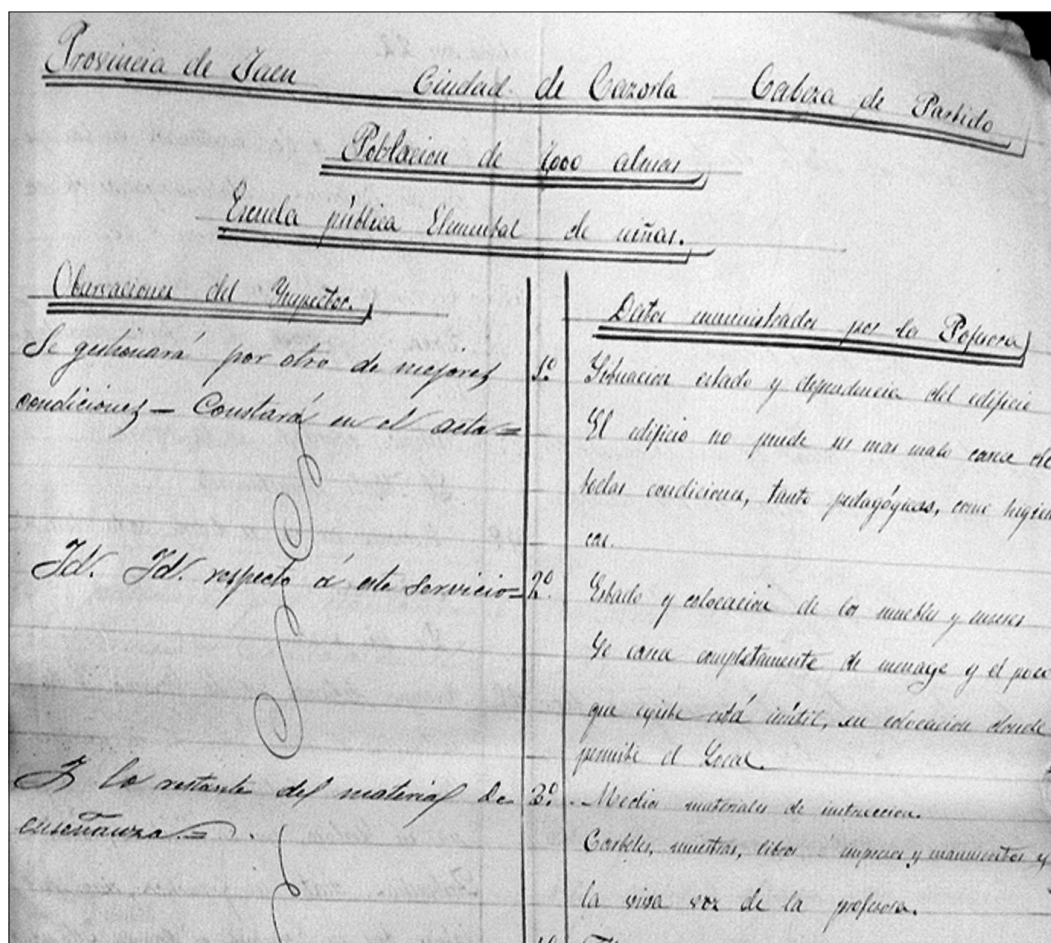 Provincia de Jaen Ciudad de Cazorla Cabeza de Partido
Poblacion de 7,000 almas
Escuela pública Elemental de niñas.
Obsrvaciones del Ynspector.
Se gestionará por otro de mejores
condiciones — Constará en el acta =
Id. Id. respecto á este servicio =
Y lo restante del material de
enseñanza =
Datos suministrados por la Pofesora
1º Situacion estado y dependencia del edificio
El edificio no puede ser mas malo carece de
todas condiciones, tanto pedagógicas, como higién
cas.
2º Estado y colocacion de los muebles y enseres
Se carece completamente de menage y el poco
que existe está inútil, su colocacion donde
permite el Local.
3º Medios materiales de instruccion.
Carteles, muestras, libros impresos y manuscritos y
la viva voz de la profesora.